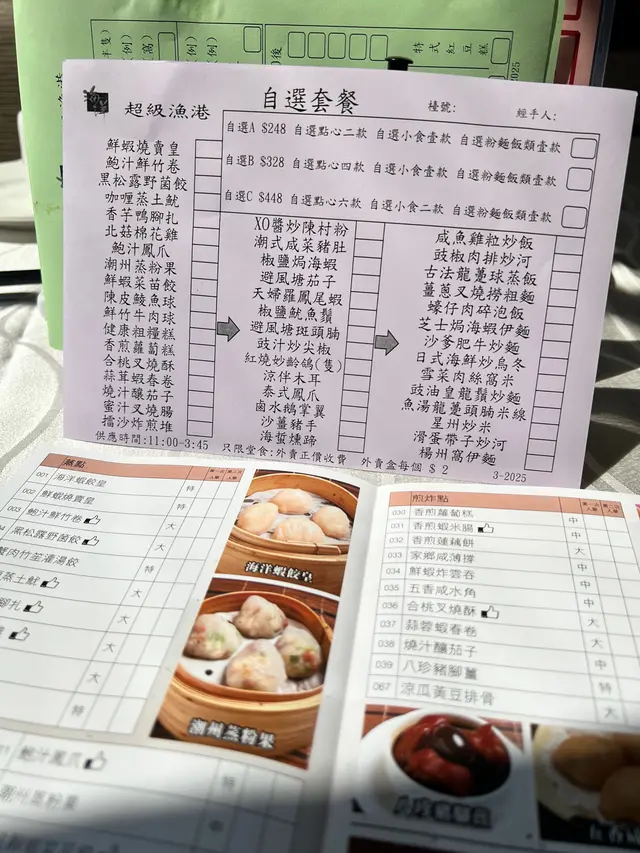 特式紅豆糕
2025
超級漁港
自選套餐
檯號:
經手人:
自選A $248 自選點心二款 自選小食壹款 自選粉麵飯類壹款
自選B $328 自選點心四款 自選小食壹款 自選粉麵飯類壹款
自選C $448 自選點心六款 自選小食二款 自選粉麵飯類壹款
鮮蝦燒賣皇
鮑汁鮮竹卷
黑松露野菌餃
咖喱蒸土魷
香芋鴨腳扎
北菇棉花雞
鮑汁鳳爪
潮州蒸粉果
鮮蝦菜苗餃
陳皮鯪魚球
鮮竹牛肉球
健康粗糧糕
香煎蘿蔔糕
合桃叉燒酥
蒜茸蝦春卷
燒汁釀茄子
蜜汁叉燒腸
擂沙炸煎堆
XO醬炒陳村粉
潮式咸菜豬肚
椒鹽焗海蝦
避風塘茄子
天婦羅鳳尾蝦
椒鹽魷魚鬚
避風塘斑頭腩
豉汁炒尖椒
紅燒妙齡鴿(隻)
涼伴木耳
泰式鳳爪
鹵水鵝掌翼
沙薑豬手
海蜇燻蹄
咸魚雞粒炒飯
豉椒肉排炒河
古法龍躉球蒸飯
薑蔥叉燒撈粗麵
蠔仔肉碎泡飯
芝士焗海蝦伊麵
沙爹肥牛炒麵
日式海鮮炒烏冬
雪菜肉絲窩米
豉油皇龍鬚炒麵
魚湯龍躉頭腩米線
星州炒米
滑蛋帶子炒河
楊州窩伊麵
供應時間:11:00-3:45
只限堂食:外賣正價收費 外賣盒每個 $ 2
3-2025
蒸點
001 海洋蝦餃皇 特
002 鮮蝦燒賣皇 大
003 鮑汁鮮竹卷 大
黑松露野菌餃 特
蟹肉竹笙灌湯餃
蒸土魷
腳扎
大
特
海洋蝦餃皇
潮州蒸粉果
鮑汁鳳爪 特
潮州蒸粉果 中
煎炸點
030 香煎蘿蔔糕 中
031 香煎蝦米腸 大
032 香煎蓮藕餅 中
033 家鄉咸薄撐 中
034 鮮蝦炸雲吞 大
035 五香咸水角 中
036 合桃叉燒酥 大
037 蒜蓉蝦春卷 大
038 燒汁釀茄子 中
039 八珍豬腳薑 特
067 涼瓜黃豆排骨 大
八珍豬腳薑